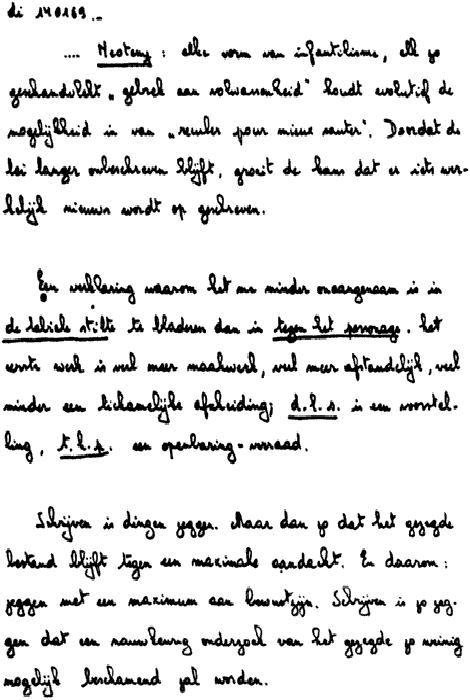 di 140169..
.... Neoteny: elke vorm van infantilisme, elk zo
gebrek aan volwassenheid" houdt evolutief de
mogelijkheid in van "reculer pour mieux sauter". Doordat de
lei langer onbeschreven blijft, groeit de kans dat er iets wer-
kelijk nieuws wordt op geschreven.
Een verklaring waarom het me minder onaangenaam is in
de labiele stilte te bladeren dan in tegen het personage. het
eerste werk is veel meer maakwerk, veel meer afstandelijk, veel
minder een lichamelijke afscheiding; d.l.s. is een voorstel-
ling, t.h.p. een openbaring-verraad.
Schrijven is dingen zeggen. Maar dan zo dat het gezegde
bestand blijft tegen een maximale aandacht. En daarom:
zeggen met een maximum aan bewustzijn. Schrijven is zo zeg-
gen dat een nauwkeurig onderzoek van het gezegde zo weinig
mogelijk beschamend zal worden.